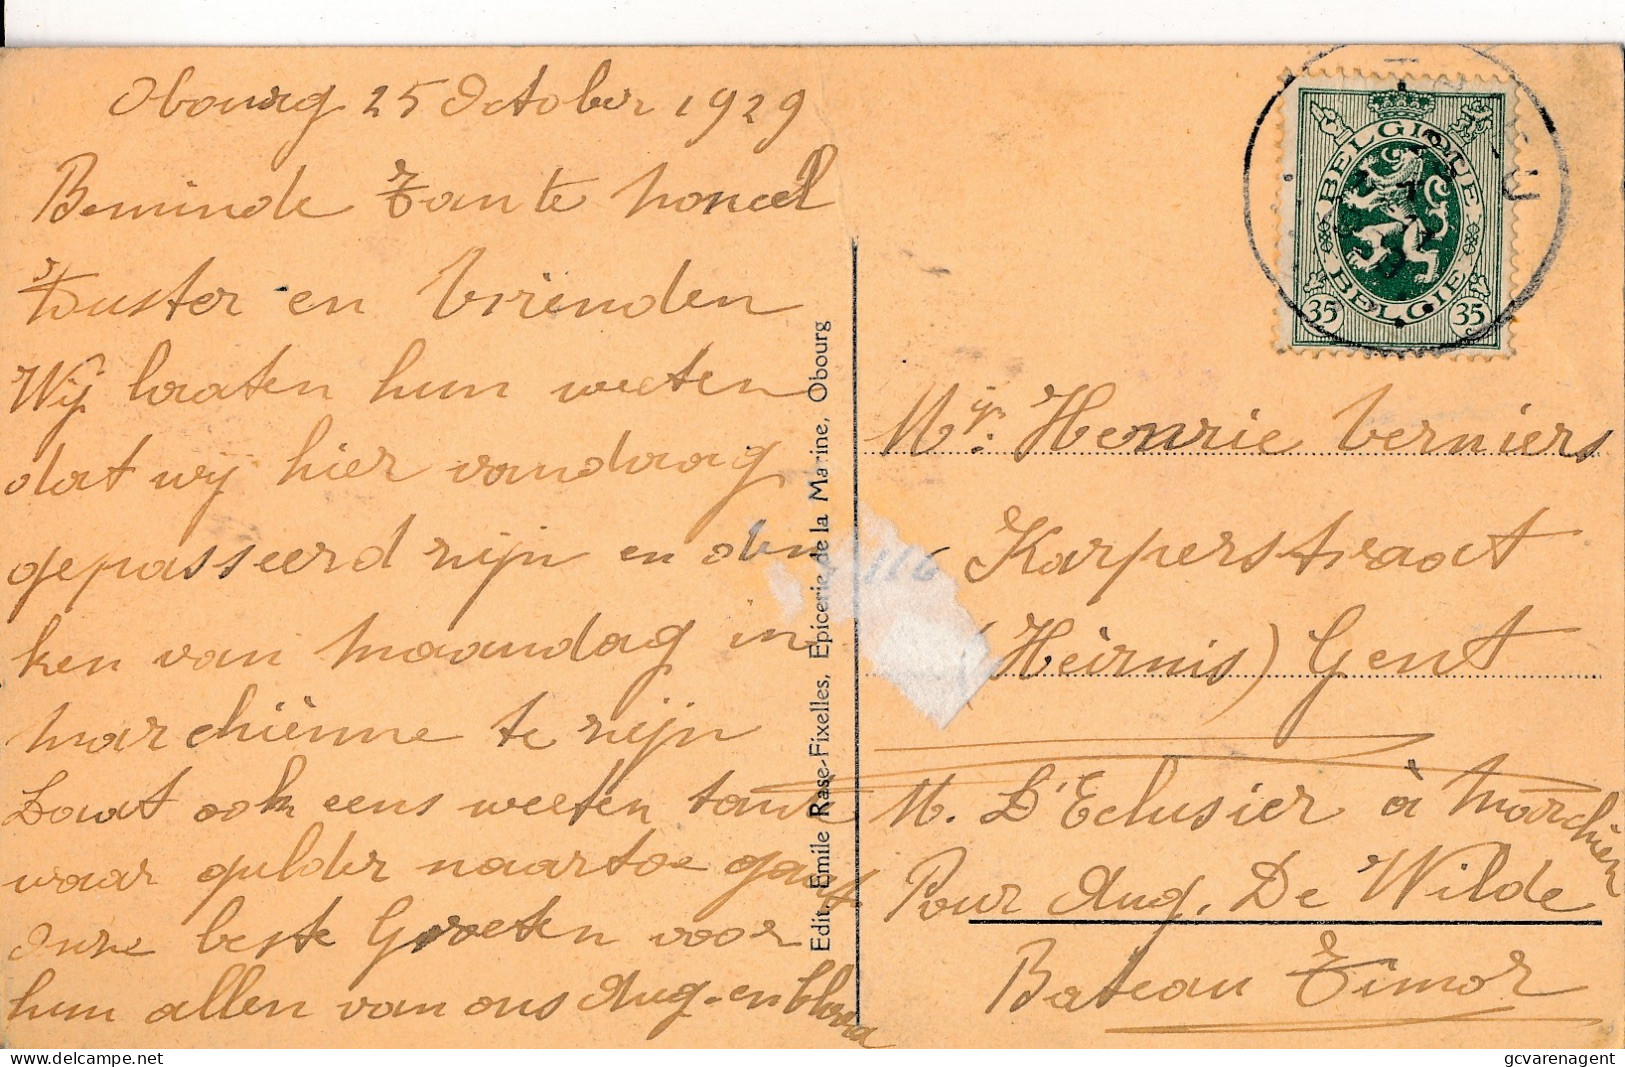 Obourg 25 October 1929
Beminde Tante noncel
Zuster en Vrienden
Wij laaten hun weeten
dat wij hier vandaag
gepasseerd zijn en den
ken van maandag in
marchiènne te zijn
Laat ook eens weeten tante
waar gulder naartoe gaat.
Onze beste Groeten voor
hun allen van ons Aug. en Flora
Edit. Emile Rase-Fixelles, Epicerie de la Marine, Obourg
BELGIQUE
BELGIE
35 35
Mr. Henrie Verniers
116 Karperstraat
(Heirnis) Gent
M. L'Eclusier à Marchien
Pour Aug. De Wilde
Bateau Timor
gcvarenagent